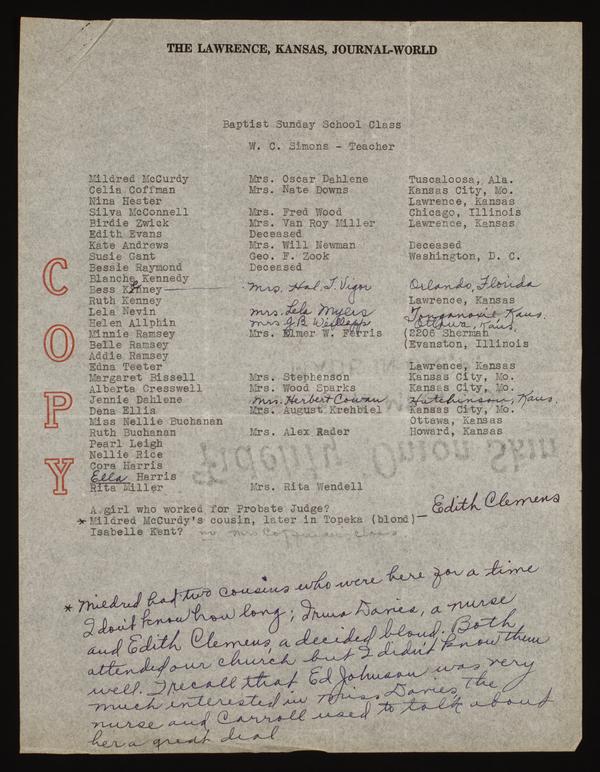 THE LAWRENCE, KANSAS, JOURNAL-WORLD
Baptist Sunday School Class
W. C. Simons - Teacher
COPY
Mildred McCurdy Mrs. Oscar Dahlene Tuscaloosa, Ala.
Celia Coffman Mrs. Nate Downs Kansas City, Mo.
Nina Hester Lawrence, Kansas
Silva McConnell Mrs. Fred Wood Chicago, Illinois
Birdie Zwick Mrs. Van Roy Miller Lawrence, Kansas
Edith Evans Deceased
Kate Andrews Mrs. Will Newman Deceased
Susie Gant Geo. F. Zook Washington, D. C.
Bessie Raymond Deceased
Blanche Kennedy
Bess Kinney Mrs. Hal T. Vigor Orlando, Florida
Ruth Kenney Lawrence, Kansas
Lela Nevin Mrs. Lela Myers Tonganoxie Kans.
Helen Allphin Mrs J.B. Ottawa, Kans.
Minnie Ramsey Mrs. Elmer W. Ferris (2206 Sherman
Belle Ramsey (Evanston, Illinois
Addie Ramsey
Edna Teeter Lawrence, Kansas
Margaret Bissell Mrs. Stephenson Kansas City, Mo.
Alberta Cresswell Mrs. Wood Sparks Kansas City, Mo.
Jennie Dahlene Mrs. Herbert Cowan Hutchinson, Kans.
Dena Ellis Mrs. August Krehbiel Kansas City, Mo.
Miss Nellie Buchanan Ottawa, Kansas
Ruth Buchanan Mrs. Alex Rader Howard, Kansas
Pearl Leigh
Nellie Rice
Cora Harris
Ella Harris
Rita Miller Mrs. Rita Wendell
Fidelity Onion Skin
A girl who worked for Probate Judge?
* Mildred McCurdy's cousin, later in Topeka (blond) — Edith Clemens
Isabelle Kent? in Mrs class
* Mildred had two cousins who were here for a time
I don't know how long; Irma Davies, a nurse
and Edith Clemens, a decided blond. Both
attended our church but I didn't know them
well. I recall that Ed Johnson was very
much interested in Miss Davies, the
nurse and Carroll used to talk about
her a great deal